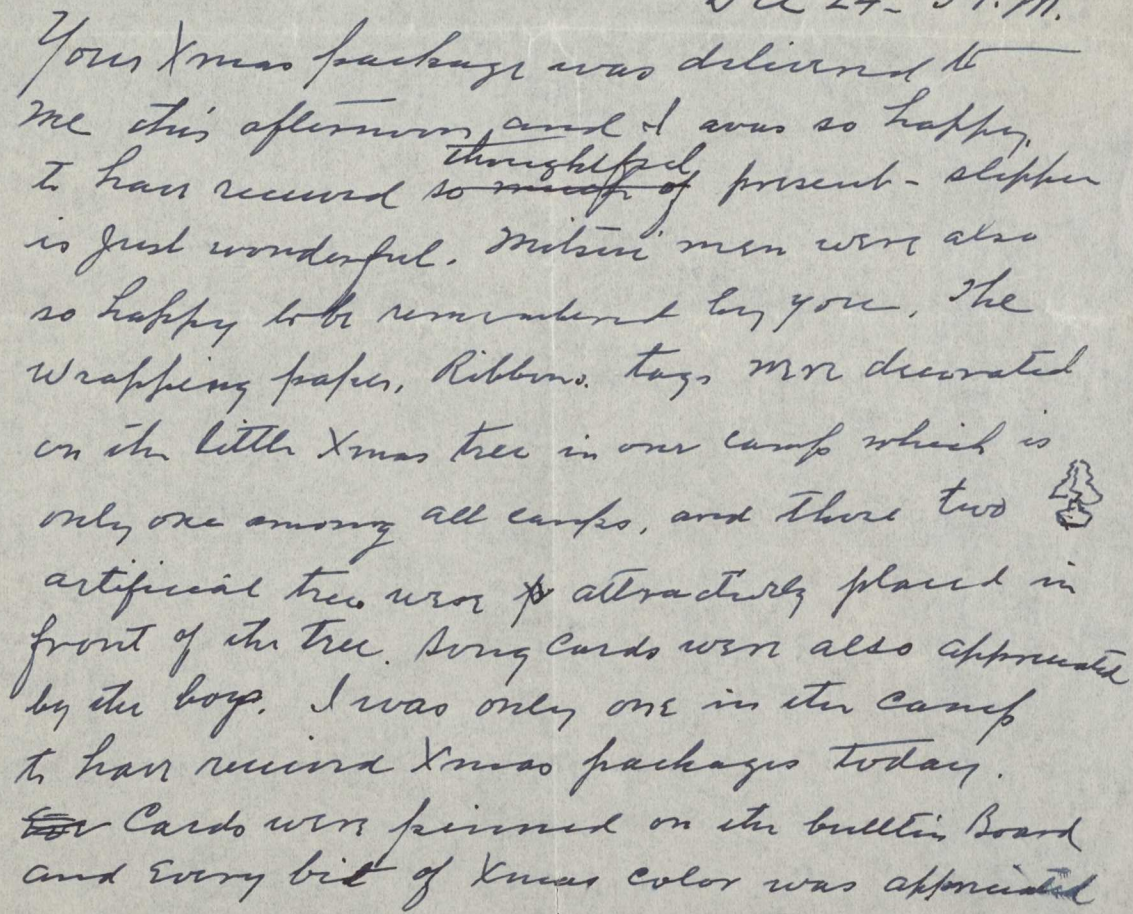 Dec 24- P.M.
Your Xmas package was delivered to
me this afternoon, and I was so happy
thoughtful
to have received so much of present - slipper
is just wonderful. Mitsui men were also
so happy to be remembered by you. The
wrapping paper, Ribbons. tags were decorated
on the little Xmas tree in our camp which is
only one among all camps, and those two
artificial tree were attractively placed in
front of the tree. Song Cards were also appreciated
by the boys. I was only one in the camp
to have received Xmas packages today.
Cards were pinned on the bulltin Board
and Every bit of Xmas color was appreciated